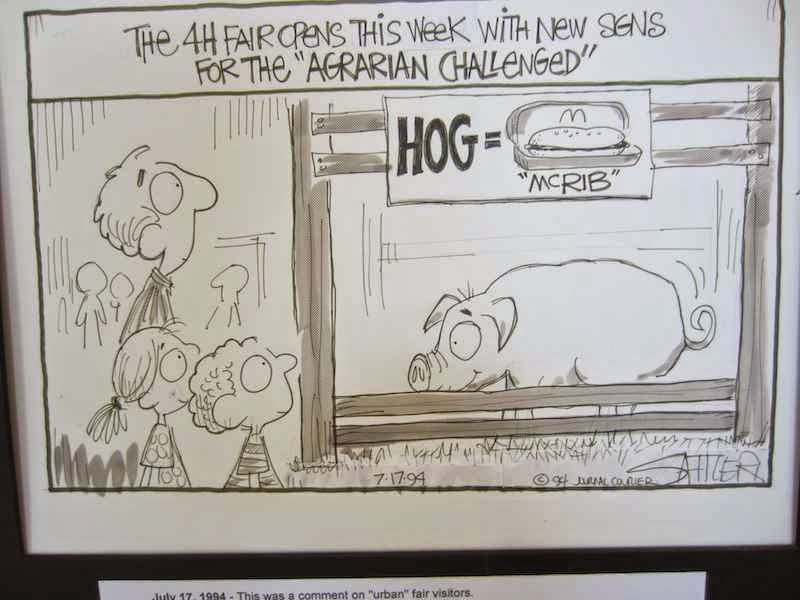 THE 4H FAIR OPENS THIS WEEK WITH NEW SIGNS
FOR THE "AGRARIAN CHALLENGED"
HOG =
M
"MCRIB"
7.17.94
© 94 JOURNAL COURIER
SATTLER
July 17, 1994 - This was a comment on "urban" fair visitors.